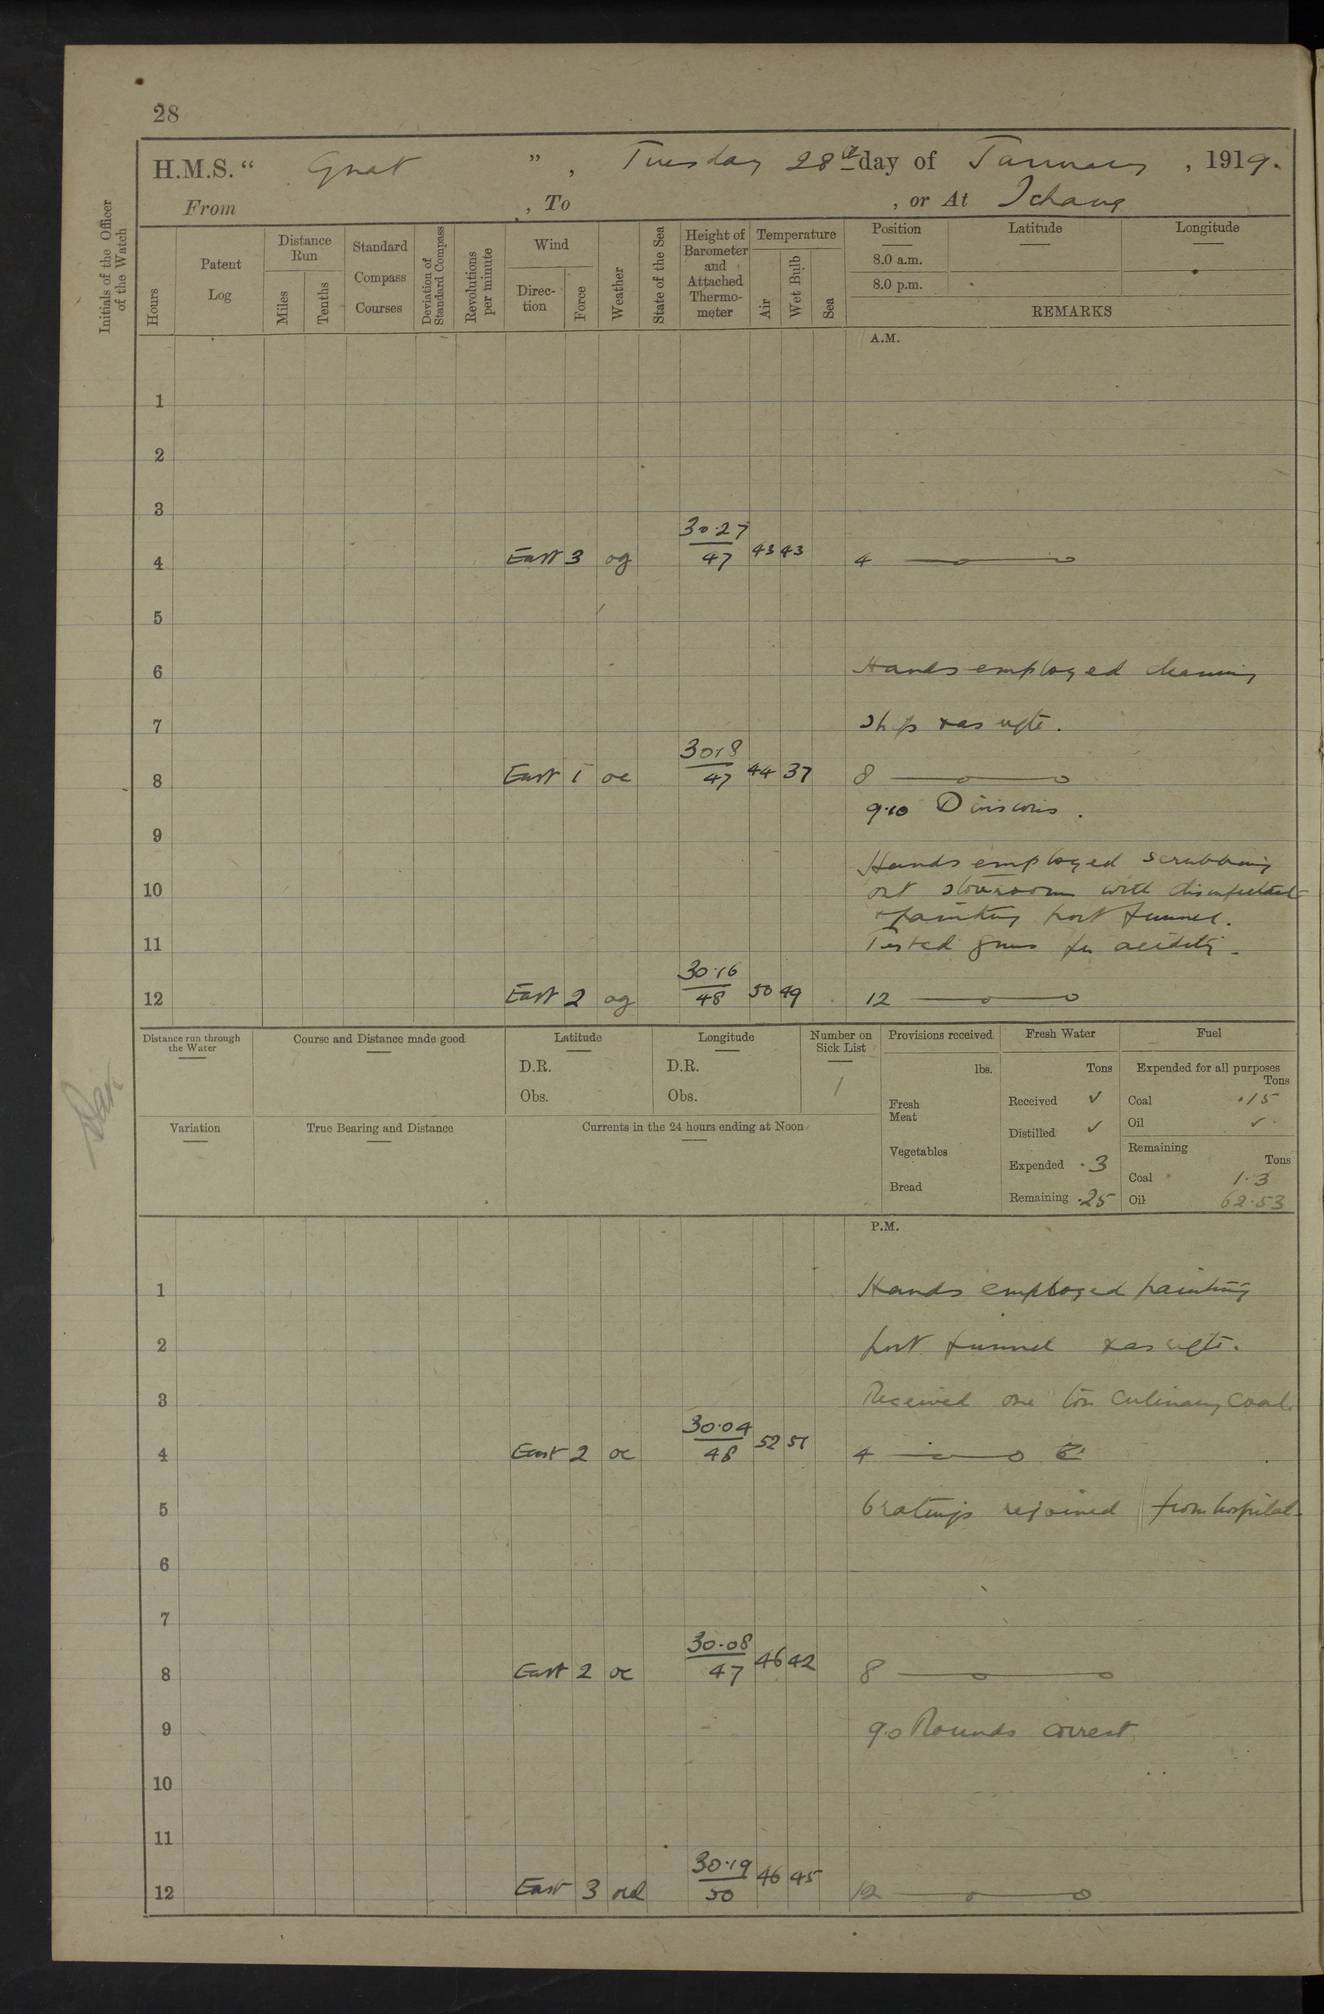 28
H.M.S. " Gnat ", Tuesday 28th day of January, 1919.
From , To , or At Ichang
Initials of the Officer of the Watch
Hours
Patent Log
Distance Run
Miles
Tenths
Standard Compass Courses
Deviation of Standard Compass
Revolutions per minute
Wind
Direction
Force
Weather
State of the Sea
Height of Barometer and Attached Thermometer
Temperature
Air
Wet Bulb
Sea
Position
8.0 a.m.
8.0 p.m.
Latitude
Longitude
REMARKS
A.M.
1
2
3
4 East 3 og 30.27/47 43 43 4
5
6 Hands employed cleaning
7 ship & as regte.
8 East 1 oc 30.18/47 44 37 8
9.10 Divisions.
9
Hands employed scrubbing
10 out storeroom with disinfectant
& painting port funnel.
11 Tested guns for acidity.
12 East 2 og 30.16/48 50 49 12
Distance run through the Water
Course and Distance made good
Latitude
D.R.
Obs.
Longitude
D.R.
Obs.
Number on Sick List
1
Provisions received
lbs.
Fresh Meat
Vegetables
Bread
Fresh Water
Tons
Received ✓
Distilled ✓
Expended .3
Remaining .25
Fuel
Expended for all purposes
Tons
Coal .15
Oil ✓
Remaining
Tons
Coal 1.3
Oil 62.53
Variation
True Bearing and Distance
Currents in the 24 hours ending at Noon
P.M.
1 Hands employed painting
2 port funnel & as regte.
3 Received one ton culinary coal.
4 East 2 oc 30.04/48 52 51 4
5 6 ratings rejoined from hospital.
6
7
8 East 2 oc 30.08/47 46 42 8
9 9.0 Rounds correct
10
11
12 East 3 od 30.19/50 46 45 12